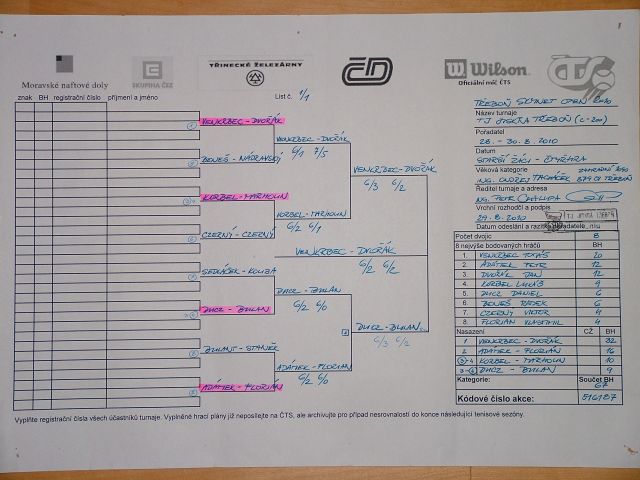 Moravské naftové doly
SKUPINA ČEZ
TŘINECKÉ ŽELEZÁRNY
ČD
Wilson
Oficiální míč ČTS
ČTS
znak BH registrační číslo příjmení a jméno
List č. 1/1
TŘEBOŇ OPEN 2010
Název turnaje
TJ JISKRA TŘEBOŇ (C-200)
Pořadatel
28. - 30. 8. 2010
Datum
STARŠÍ ŽÁCI - ČTYŘHRA
Věková kategorie
ING. ONDŘEJ 379 01 TŘEBOŇ
Ředitel turnaje a adresa
ING. PETR
Vrchní rozhodčí a podpis
29.8.2010
Datum odeslání a razítko pořadatele
VENKRBEC - DVOŘÁK
BENEŠ - NÁDRAVSKÝ
KORBEL - MARHOUN
ČERNÝ - ČERNÝ
SEDLÁČEK - KOLBA
DUCZ - BULAN
BULANT - STANĚK
ADÁMEK - FLORIÁN
VENKRBEC - DVOŘÁK
6/1 7/5
KORBEL - MARHOUN
6/2 6/1
DUCZ - BULAN
6/2 6/0
ADÁMEK - FLORIÁN
6/2 6/0
VENKRBEC - DVOŘÁK
6/3 6/2
DUCZ - BULAN
6/3 6/2
VENKRBEC - DVOŘÁK
6/2 6/2
Počet dvojic 8
8 nejvýše bodovaných hráčů BH
1. VENKRBEC TOMÁŠ 20
2. ADÁMEK PETR 12
3. DVOŘÁK JAN 12
4. KORBEL LUKÁŠ 9
5. DUCZ DANIEL 6
6. BENEŠ RADEK 6
7. ČERNÝ VIKTOR 4
8. FLORIÁN VLASTIMIL 4
Nasazení CŽ BH
1 VENKRBEC - DVOŘÁK 32
2 ADÁMEK - FLORIÁN 16
3-4 KORBEL - MARHOUN 10
3-4 DUCZ - BULAN 9
Kategorie: Součet BH
67
Kódové číslo akce: 516187
Vyplňte registrační čísla všech účastníků turnaje. Vyplněné hrací plány již neposílejte na ČTS, ale archivujte pro případ nesrovnalostí do konce následující tenisové sezóny.